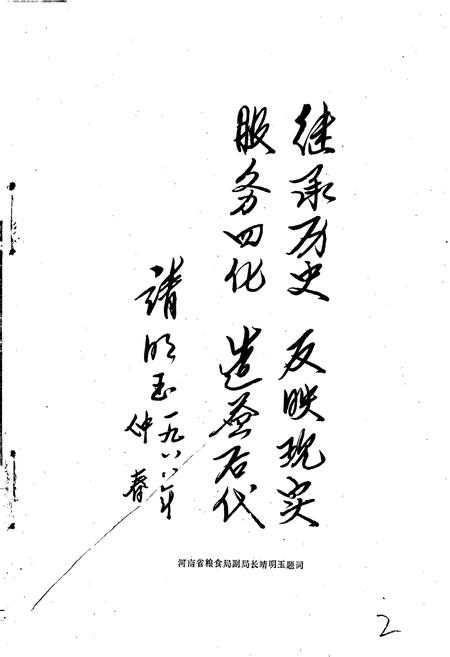 继承历史 反映现实
服务四化 造益后代
靖明玉一九八八年
仲春
河南省粮食局副局长靖明玉题词
2